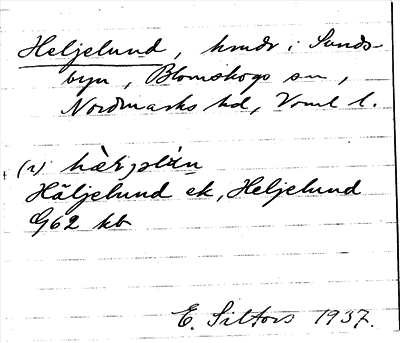 Heljelund, hmdr i Sunds-
byn, Blomskogs sn,
Nordmarks hd, Vrml l.
(1)
Häljelund ek, Heljelund
G62 kb
E. Silfors 1937.